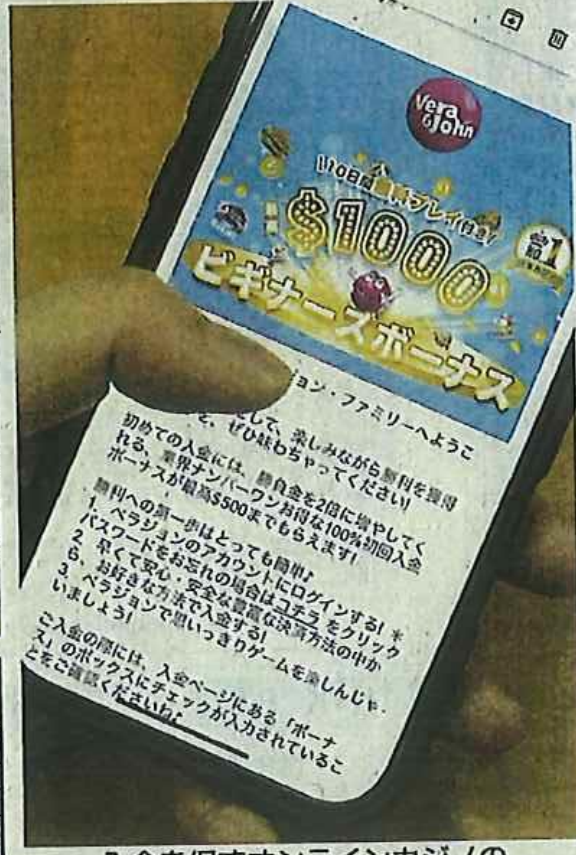 Vera
&John
10日間無料プレイ付き!
$1000
NO.1
ビギナースボーナス
ョン・ファミリーへようこ
して、楽しみながら勝利を獲得
、ぜひ味わちゃってください!
初めての入金には、勝負金を2倍に増やしてく
れる、業界ナンバーワンお得な100%初回入金
ボーナスが最高$500までもらえます!
勝利への第一歩はとっても簡単♪
1、ベラジョンのアカウントにログインする! *
パスワードをお忘れの場合はコチラ をクリック
2、早くて安心・安全な豊富な決済方法の中か
ら、お好きな方法で入金する!
3、ベラジョンで思いっきりゲームを楽しんじゃ
いましょう!
ご入金の際には、入金ページにある「ボーナ
ス」のボックスにチェックが入力されているこ
とをご確認くださいね♪
入金を促すオンラインカジノの